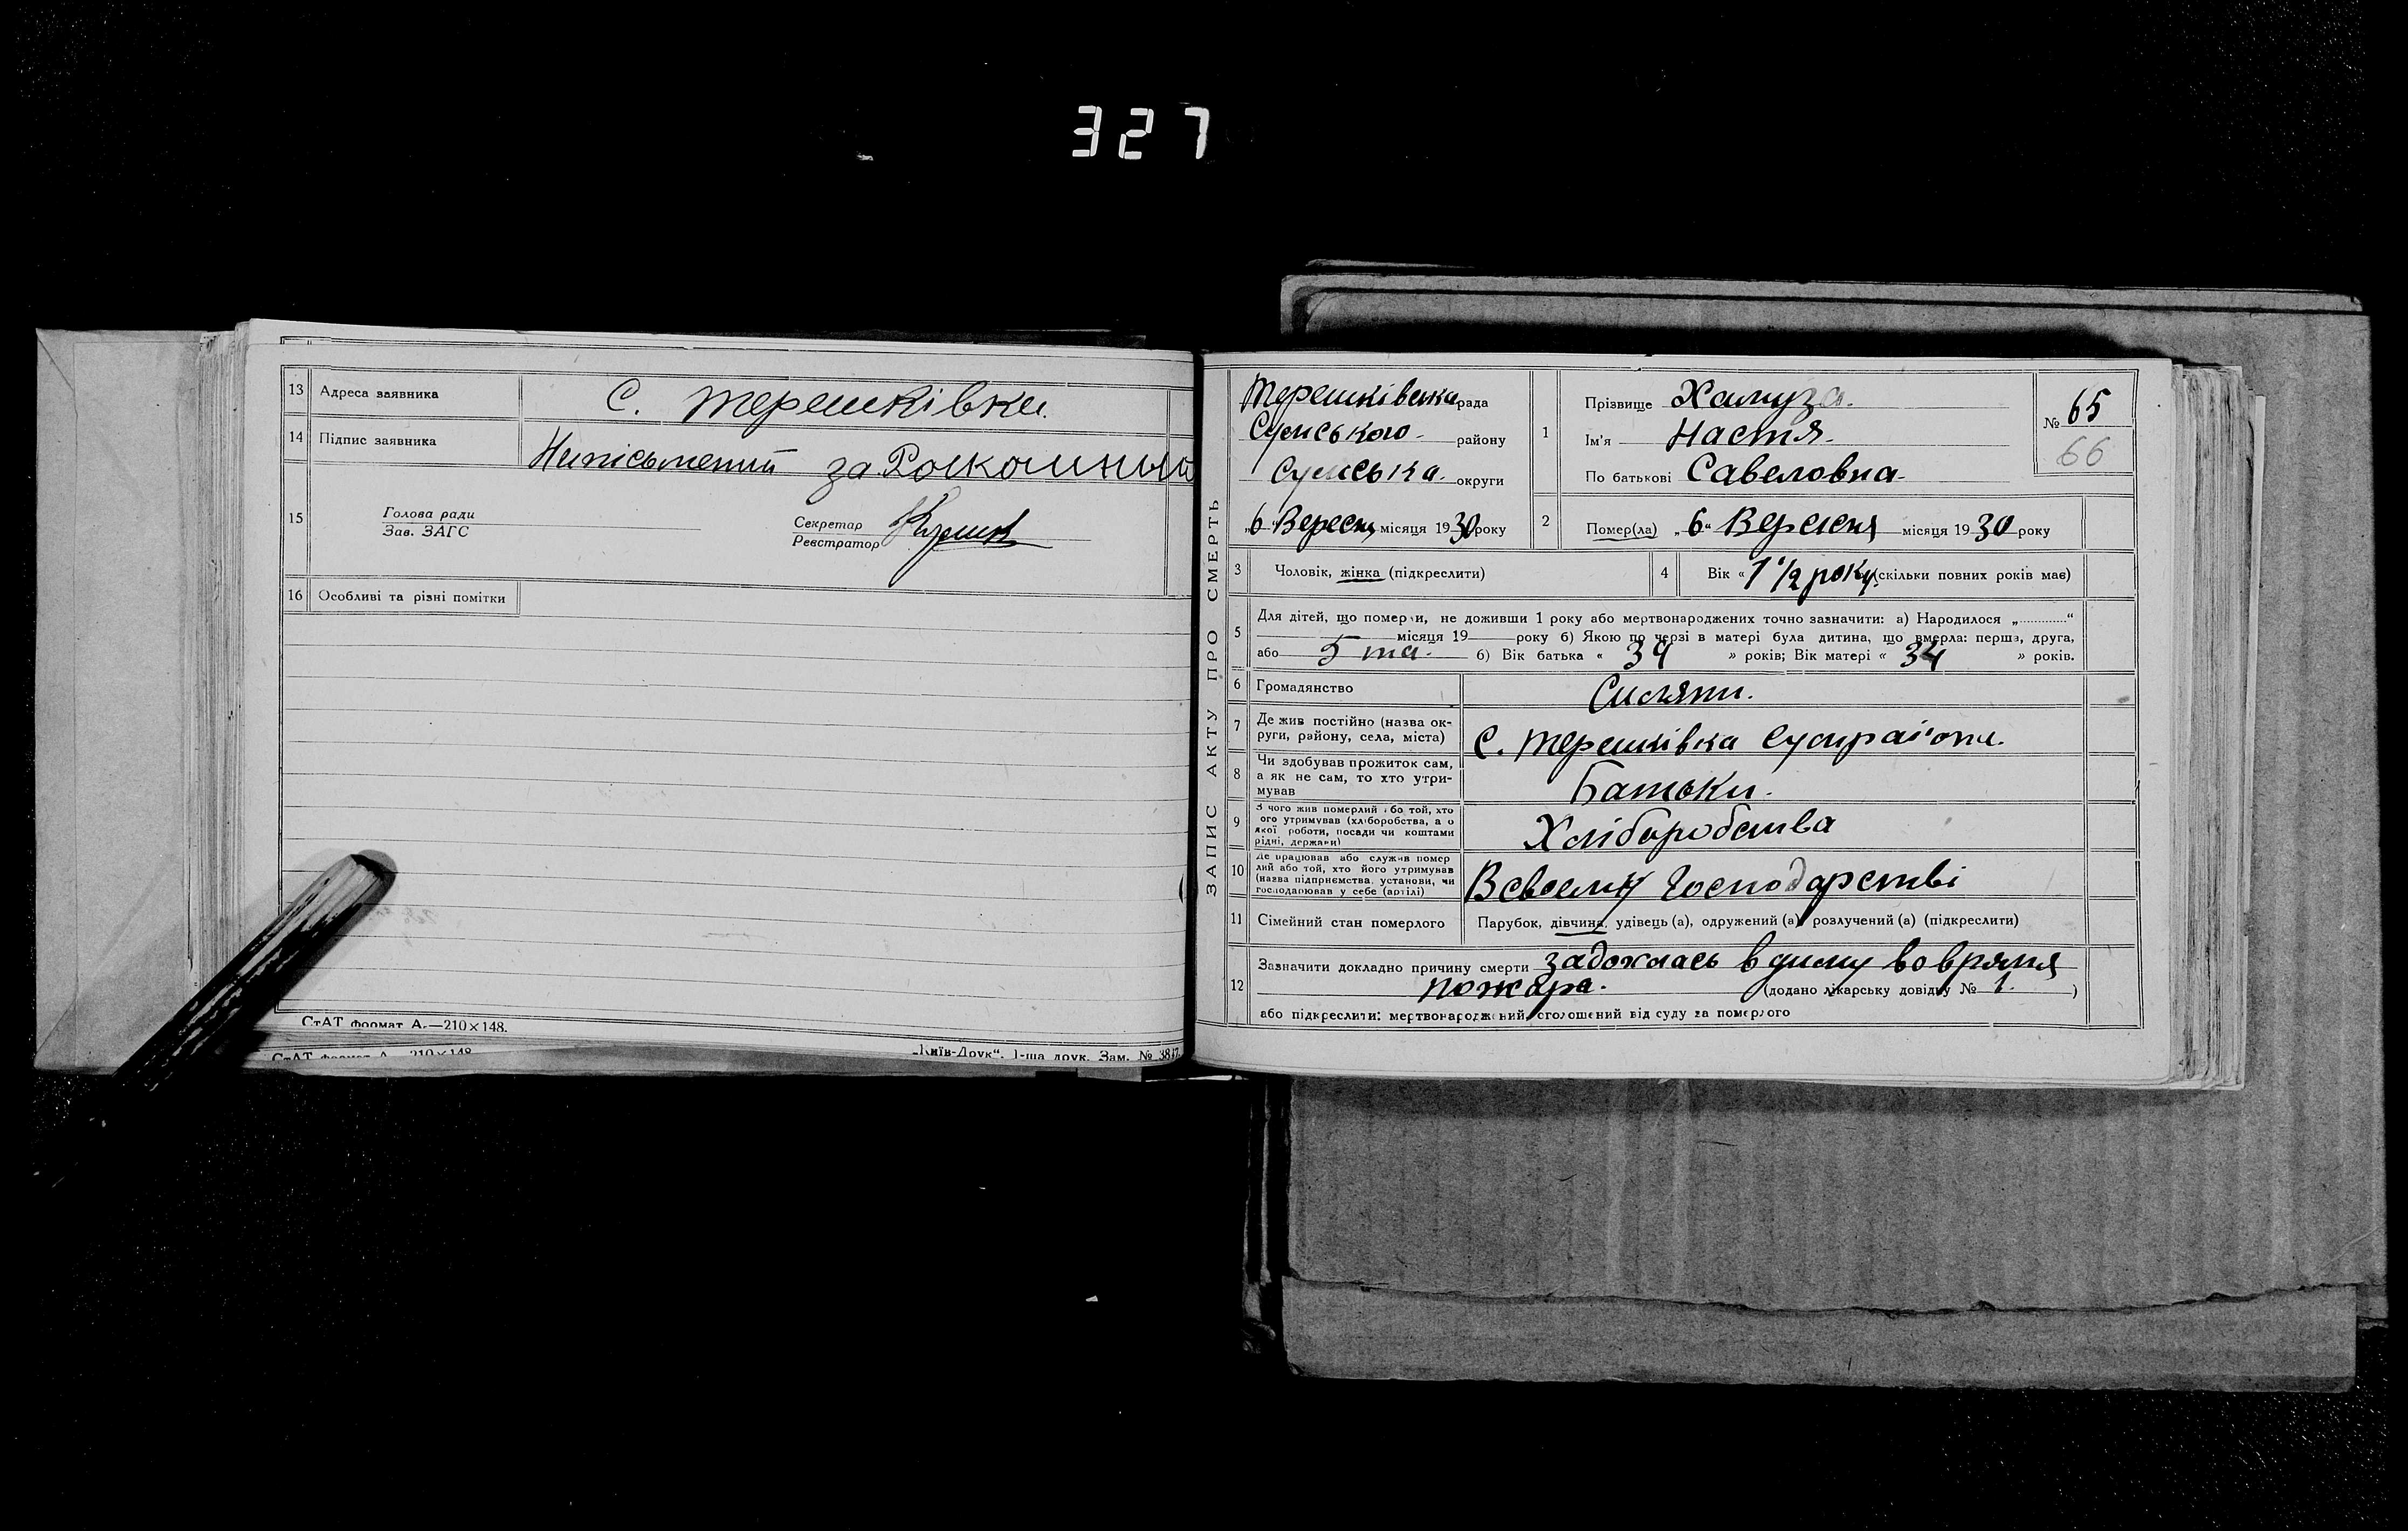 327
13 Адреса заявника С. Терешківки.
14 Підпис заявника Неписьмений за Роскошный
15 Голова ради
Зав. ЗАГС
Секретар
Реєстратор
16 Особливі та різні помітки
СтАТ формат А.—210×148.
СтАТ формат А.—210×148
„Київ-Друк“. 1-ша друк. Зам. № 3817.
ЗАПИС АКТУ ПРО СМЕРТЬ
Терешківська рада
Сумського району
Сумська округи
„6“ Вересня місяця 1930 року
1 Прізвище Хамуза.
Ім'я Настя.
По батькові Савеловна
№ 65
66
2 Помер(ла) „6“ Вересня місяця 1930 року
3 Чоловік, жінка (підкреслити)
4 Вік « 1 1/2 року (скільки повних років має)
5 Для дітей, що померли, не доживши 1 року або мертвонароджених точно зазначити: а) Народилося „............“
місяця 19 року б) Якою по черзі в матері була дитина, що вмерла: перша, друга,
або 5 та. б) Вік батька « 34 » років; Вік матері « 34 » років.
6 Громадянство
7 Де жив постійно (назва ок-
руги, району, села, міста) С. Терешківка Сумрайони.
8 Чи здобував прожиток сам,
а як не сам, то хто утри-
мував Батьки.
9 З чого жив померлий або той, хто
ого утримував (хліборобства, а о
якої роботи, посади чи коштами
рідні, держави) Хліборобства
10 Де працював або служив помер
лий або той, хто його утримував
(назва підприємства, установи, чи
господарював у себе (артілі) В своему Господарстві
11 Сімейний стан померлого Парубок, дівчина, удівець (а), одружений (а) розлучений (а) (підкреслити)
12 Зазначити докладно причину смерти задохлась в диму во врямя
пожара. (додано лікарську довідку № 1. )
або підкреслити: мертвонароджений, оголошений від суду за померлого